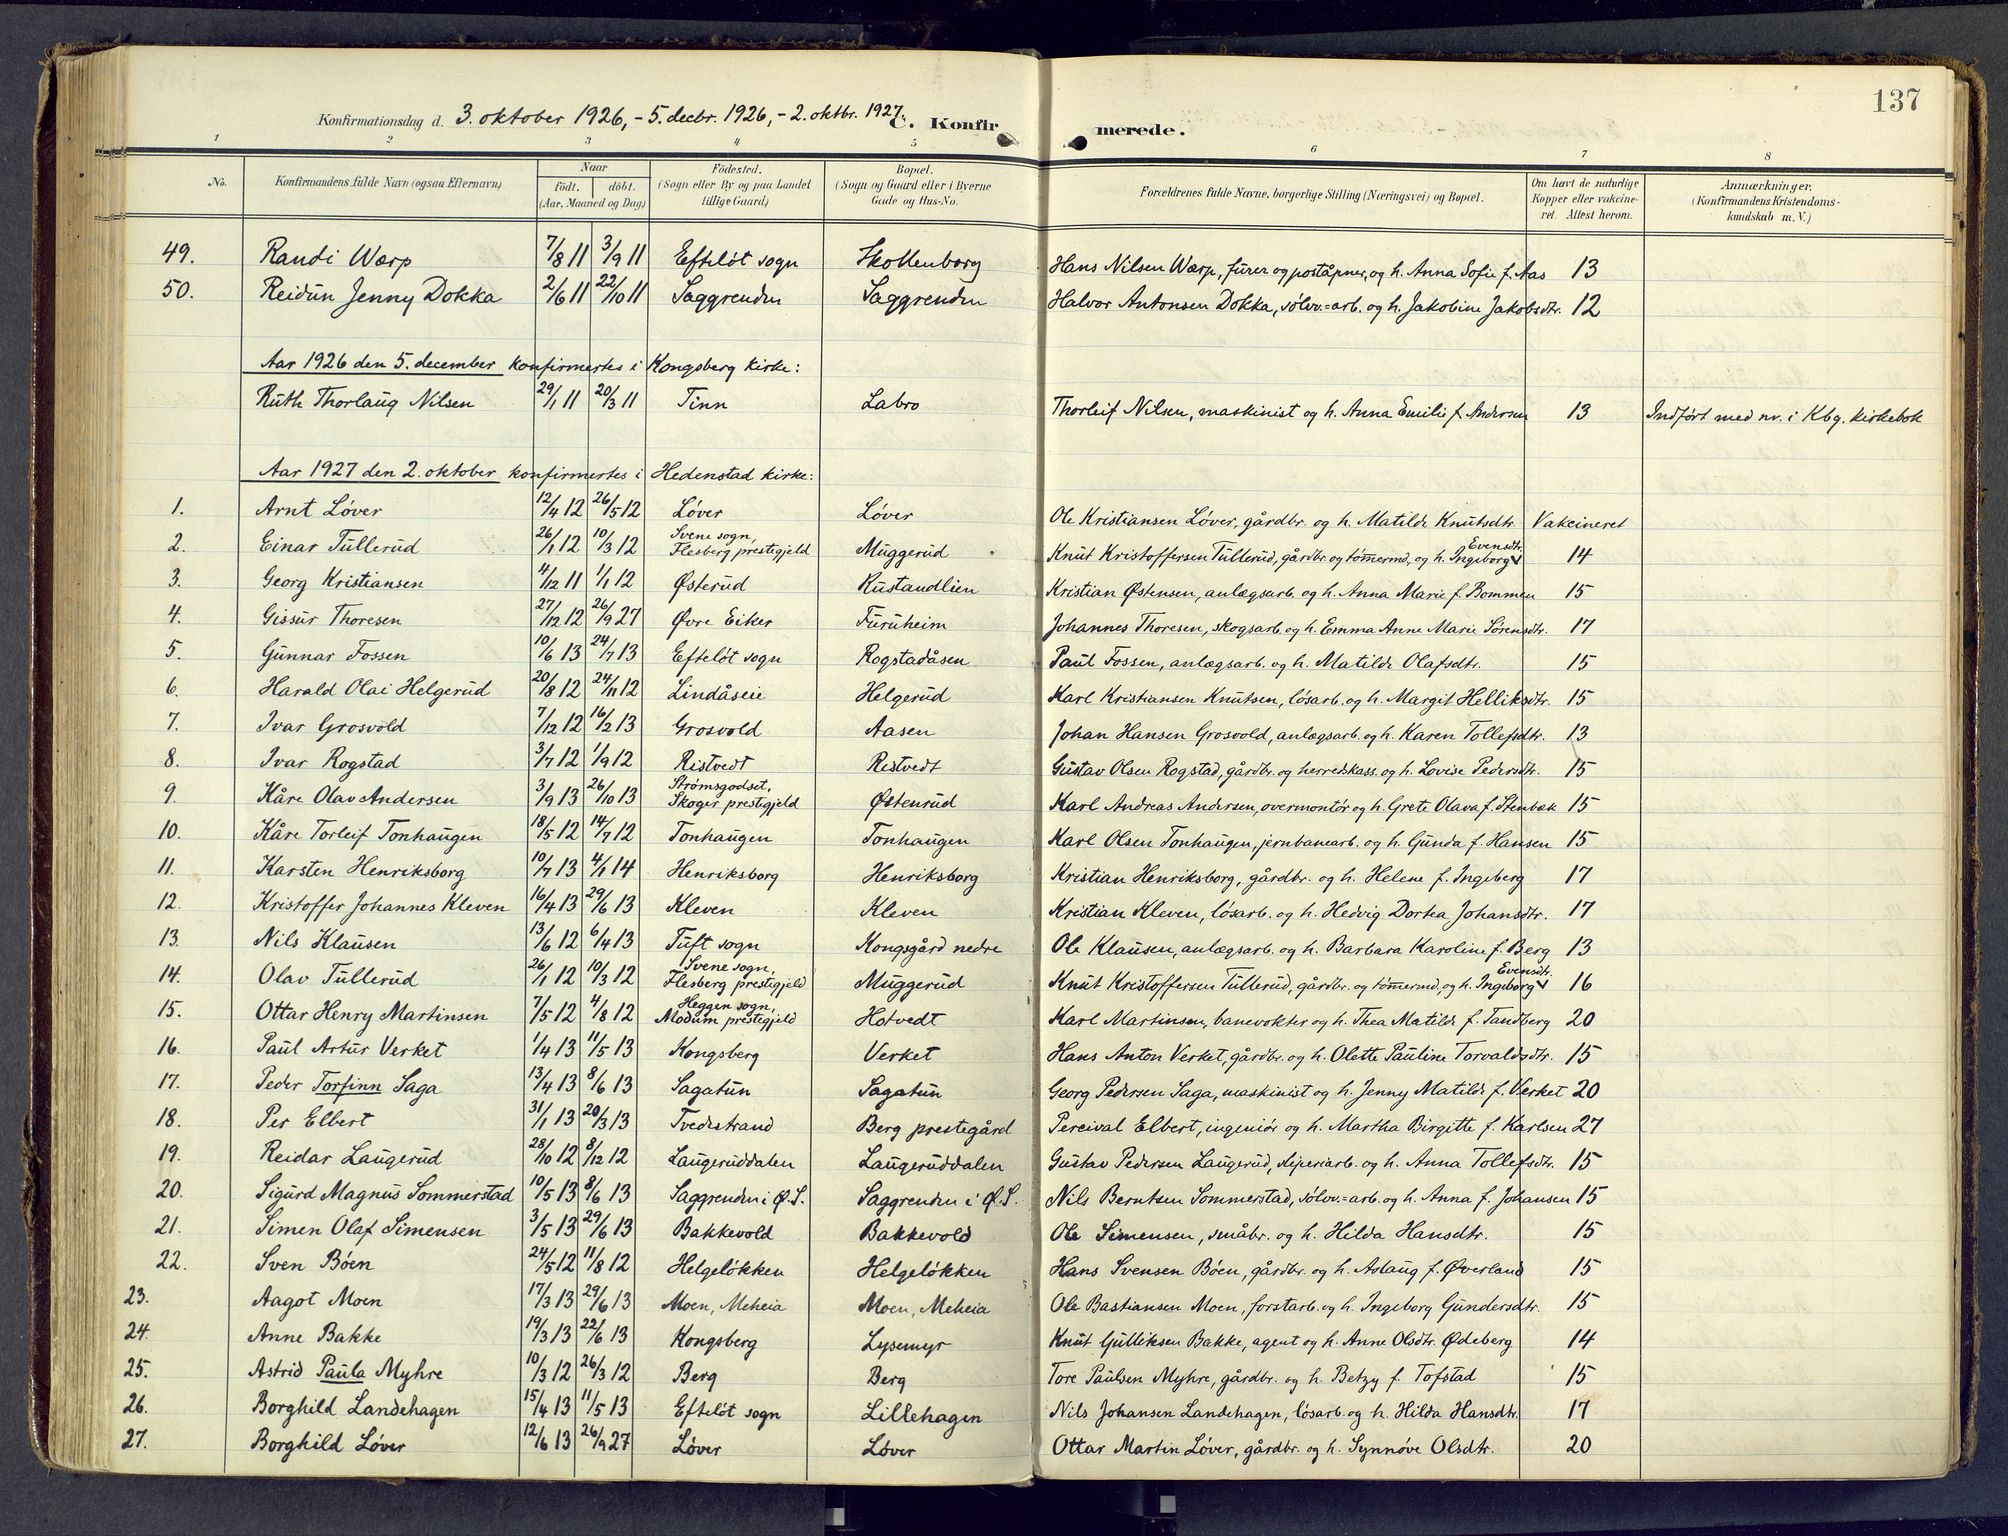 137
Konfirmationsdag d. 3. oktober 1926, - 5. decbr. 1926, - 2. oktbr. 1927. C. Konfirmerede.
1 2 3 4 5 6 7 8
No. Konfirmandens fulde Navn (ogsaa Efternavn) Naar födt. döbt. (Aar, Maaned og Dag) Födested. (Sogn eller By og paa Landet tillige Gaard) Bopæl. (Sogn og Gaard eller i Byerne Gade og Hus-No. Forældrenes fulde Navne, borgerlige Stilling (Næringsvei) og Bopæl. Om havt de naturlige Kopper eller vakcineret. Attest herom. Anmærkninger. (Konfirmandens Kristendomskundskab m. V.)
49. Randi Wærp 7/8 11 3/9 11 Efteløt sogn Skollenborg Hans Nilsen Wærp, furer og poståpner, og h. Anna Sofie f. Aas 13
50. Reidun Jenny Dokka 2/6 11 22/10 11 Saggrenden Saggrenden Halvor Antonsen Dokka, sølvv.=arb. og h. Jakobine Jakobsdtr. 12
Aar 1926 den 5. december konfirmertes i Kongsberg kirke:
Ruth Thorlaug Nilsen 29/1 11 20/3 11 Tinn Labro Thorleif Nilsen, maskinist og h. Anna Emilie f. Andersen 13 Indført med nr. i Kbg. kirkebok
Aar 1927 den 2. oktober konfirmertes i Hedenstad kirke:
1. Arnt Løver 12/4 12 26/5 12 Løver Løver Ole Kristiansen Løver, gårdbr. og h. Matilde Knutsdtr. Vakcineret
2. Einar Tullerud 26/1 12 10/3 12 Svene sogn, Flesberg prestigjeld Muggerud Knut Kristoffersen Tullerud, gårdbr. og tømermd, og h. Ingeborg Evensdtr. 14
3. Georg Kristiansen 4/12 11 1/1 12 Østerud Rustandlien Kristian Østensen, anlægsarb. og h. Anna Marie f. Bommen 15
4. Gissur Thoresen 27/12 12 26/9 27 Øvre Eiker Furuheim Johannes Thoresen, skogsarb. og h. Emma Anne Marie Sørensdtr. 17
5. Gunnar Fossen 10/6 13 24/7 13 Efteløt sogn Rogstadåsen Paul Fossen, anlægsarb. og h. Matilde Olafsdtr. 15
6. Harald Olai Helgerud 20/8 12 24/11 12 Lindåseie Helgerud Karl Kristiansen Knutsen, løsarb. og h. Margit Helliksdtr. 15
7. Ivar Grosvold 7/12 12 16/2 13 Grosvold Aasen Johan Hansen Grosvold, anlægsarb. og h. Karen Tollefsdtr. 13
8. Ivar Rogstad 3/7 12 1/9 12 Ristvedt Ristvedt Gustav Olsen Rogstad, gårdbr. og herredskass. og h. Lovise Pedersdtr. 15
9. Kåre Olav Andersen 3/9 13 26/10 13 Strømsgodset, Skoger prestigjeld Østenrud Karl Andreas Andersen, overmontør og h. Grete Olava f. Stenbæk 15
10. Kåre Torleif Tonhaugen 18/5 12 14/7 12 Tonhaugen Tonhaugen Karl Olsen Tonhaugen, jernbanearb. og h. Gunda f. Hansen 15
11. Karsten Henriksborg 10/7 13 4/1 14 Henriksborg Henriksborg Kristian Henriksborg, gårdbr. og h. Helene f. Ingeberg 17
12. Kristoffer Johannes Kleven 16/4 13 29/6 13 Kleven Kleven Kristian Kleven, løsarb. og h. Hedvig Dortea Johansdtr. 17
13. Nils Klausen 13/6 12 6/4 13 Tuft sogn Kongsgård nedre Ole Klausen, anlægsarb. og h. Barbara Karoline f. Berg 13
14. Olav Tullerud 26/1 12 10/3 12 Svene sogn, Flesberg prestigjeld Muggerud Knut Kristoffersen Tullerud, gårdbr. og tømermd, og h. Ingeborg Evensdtr. 16
15. Ottar Henry Martinsen 7/5 12 4/8 12 Heggen sogn, Modum prestigjeld Hotvedt Karl Martinsen, banevokter og h. Thea Matilde f. Tandberg 20
16. Paul Artur Verket 1/4 13 11/5 13 Kongsberg Verket Hans Anton Verket, gårdbr. og h. Olette Pauline Torvaldsdtr. 15
17. Peder Torfinn Saga 13/4 13 8/6 13 Sagatun Sagatun Georg Pedersen Saga, maskinist og h. Jenny Matilde f. Verket 20
18. Per Elbert 31/1 13 20/3 13 Tvedestrand Berg prestegård Percival Elbert, ingeniør og h. Martha Birgitte f. Karlsen 27
19. Reidar Laugerud 28/10 12 8/12 12 Laugeruddalen Laugeruddalen Gustav Pedersen Laugerud, sliperiarb. og h. Anna Tollefsdtr. 15
20. Sigurd Magnus Sommerstad 10/5 13 8/6 13 Saggrenden i Ø.S. Saggrenden i Ø.S. Nils Berntsen Sommerstad, sølvv.=arb. og h. Anna f. Johansen 15
21. Simen Olaf Simensen 3/5 13 29/6 13 Bakkevold Bakkevold Ole Simensen, småbr. og h. Hilda Hansdtr. 15
22. Sven Bøen 24/5 12 11/8 12 Helgeløkken Helgeløkken Hans Svensen Bøen, gårdbr. og h. Aslaug f. Øverland 15
23. Aagot Moen 17/3 13 29/6 13 Moen, Meheia Moen, Meheia Ole Bastiansen Moen, forstarb. og h. Ingeborg Gundersdtr. 15
24. Anne Bakke 19/3 13 22/6 13 Kongsberg Lysemyr Knut Gulliksen Bakke, agent og h. Anne Olsdtr. Ødeberg 14
25. Astrid Paula Myhre 10/3 12 26/3 12 Berg Berg Tore Paulsen Myhre, gårdbr. og h. Betzy f. Tofstad 15
26. Borghild Landehagen 15/4 13 11/5 13 Efteløt sogn Lillehagen Nils Johansen Landehagen, løsarb. og h. Hilda Hansdtr. 17
27. Borghild Løver 12/6 13 26/9 27 Løver Løver Ottar Martin Løver, gårdbr. og h. Synnøve Olsdtr. 20